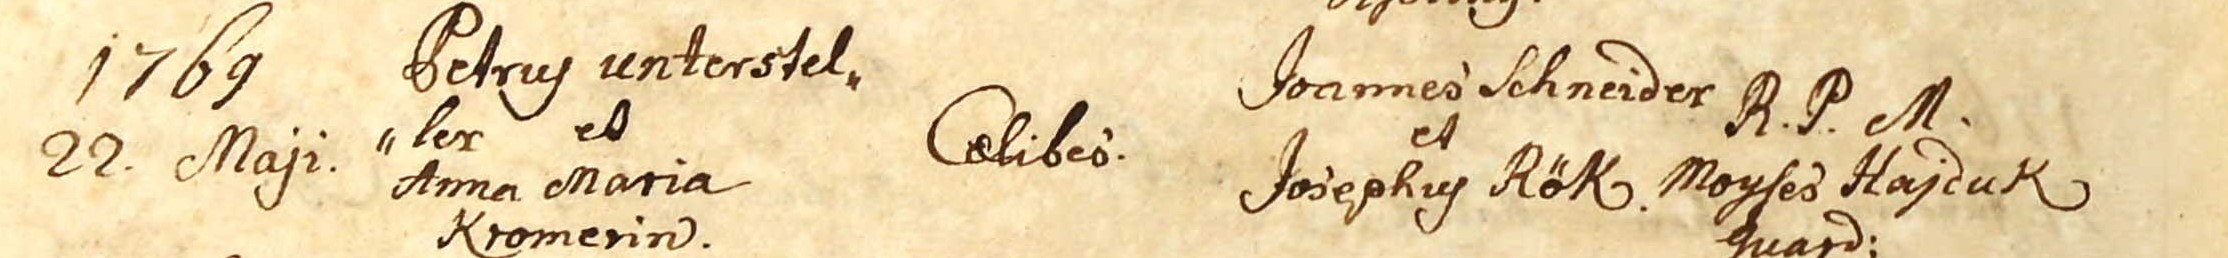 1769
22. Maji.
Petrus unterstel„
„ler et
Anna Maria
Kromerin.
Cælibes.
Joannes Schneider
et
Josephus Rök.
R. P. M.
Moyses Hajduk
Guard: